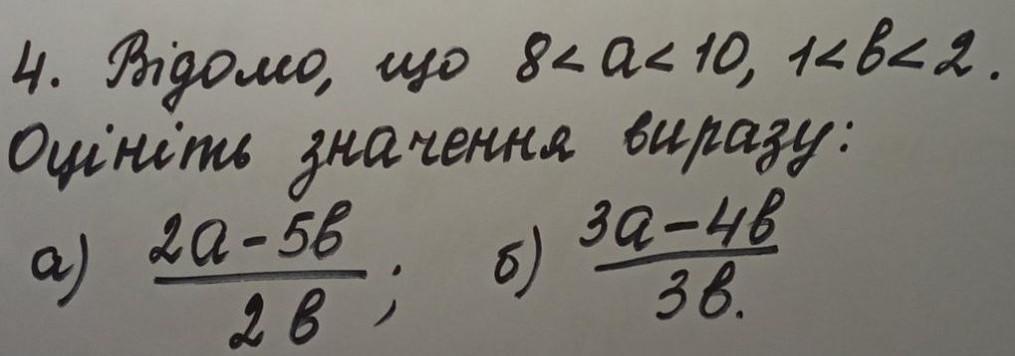 4. Відомо, що 8<a<10, 1<в<2.
Оцініть значення виразу:
а) (2a-5в)/(2в); б) (3a-4в)/(3в).